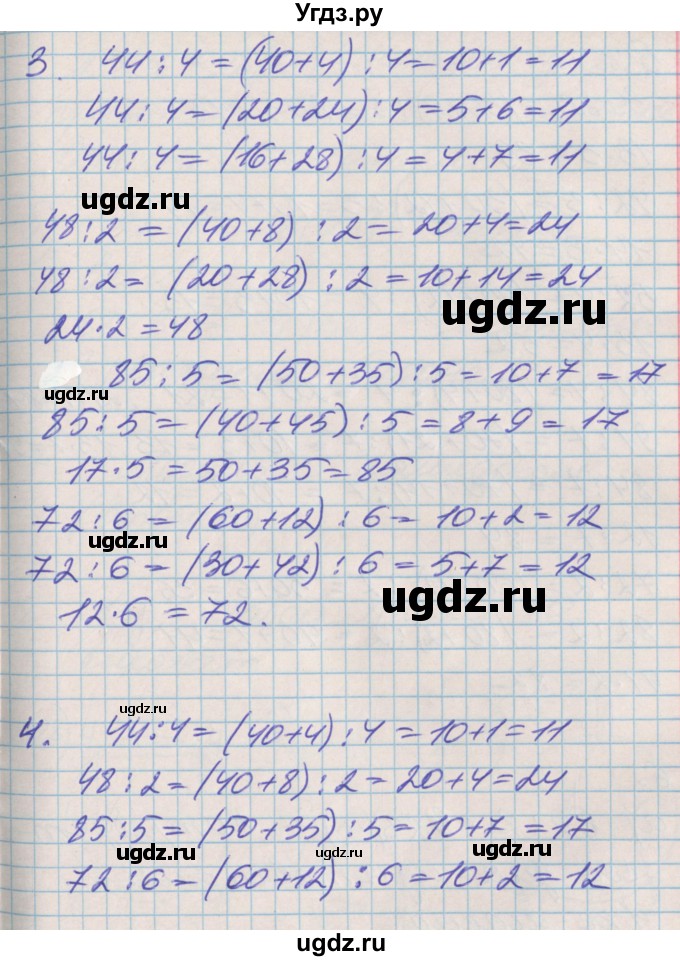 Угдз.ру
3. 44 : 4 = (40+4) : 4 = 10+1 = 11
44 : 4 = (20+24) : 4 = 5+6 = 11
44 : 4 = (16+28) : 4 = 4+7 = 11
ugdz.ru
48 : 2 = (40+8) : 2 = 20+4 = 24
48 : 2 = (20+28) : 2 = 10+14 = 24
ugdz.ru
24 · 2 = 48
85 : 5 = (50+35) : 5 = 10+7 = 17
ugdz.ru
85 : 5 = (40+45) : 5 = 8+9 = 17
17 · 5 = 50+35 = 85
72 : 6 = (60+12) : 6 = 10+2 = 12
ugdz.ru
72 : 6 = (30+42) : 6 = 5+7 = 12
ugdz.ru
12 · 6 = 72.
ugdz.ru
4. 44 : 4 = (40+4) : 4 = 10+1 = 11
48 : 2 = (40+8) : 2 = 20+4 = 24
85 : 5 = (50+35) : 5 = 10+7 = 17
ugdz.ru ugdz.ru ugdz.ru
72 : 6 = (60+12) : 6 = 10+2 = 12
ugdz.ru